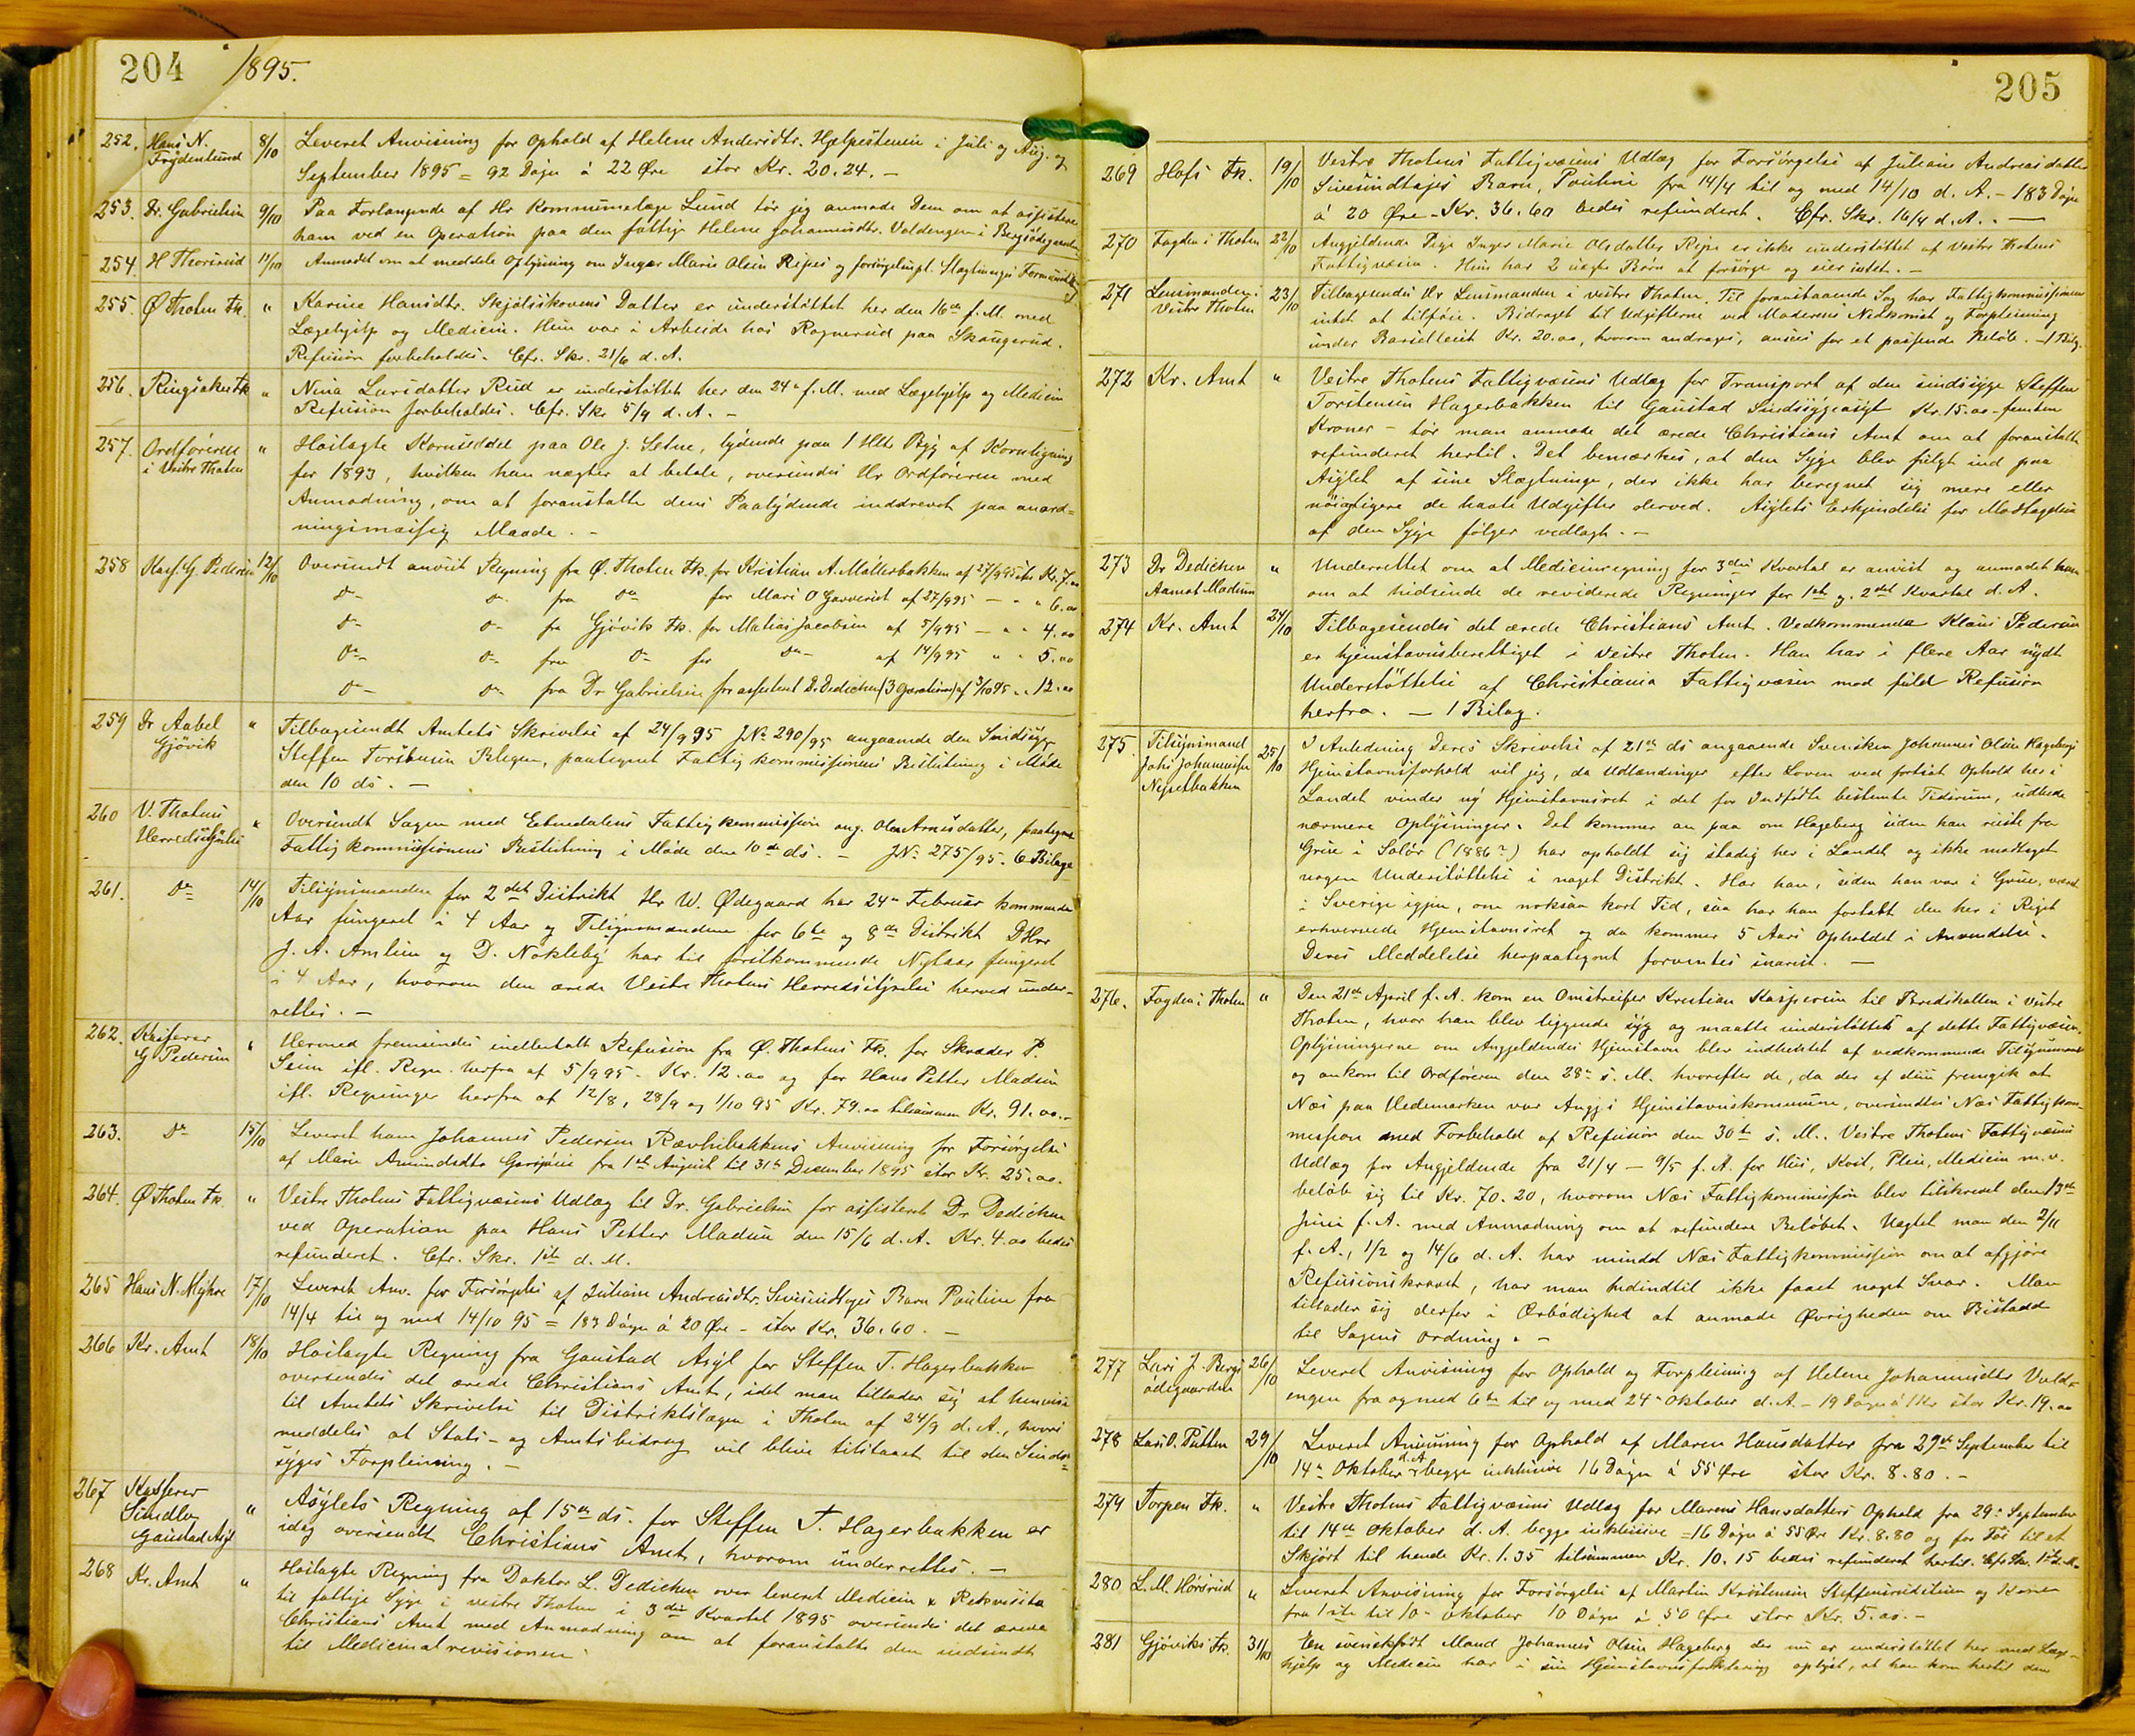 204 1895.
252. Hans N. Frydenlund 8/10 Leveret Anvisning for Ophold af Helene Andersdtr. Hjelpestuen i Juli og Aug. og
September 1895 = 92 Døgn á 22 Øre stor Kr. 20.24. -
253. Dr. Gabrielsen 9/10 Paa Forlangende af Hr Kommunelæge Lund tør jeg anmode Dem om at assistere
ham ved en Operation paa den fattige Helene Johannesdtr. Valdengen i Bergsødegaarden
254. H Thorsrud 11/10 Anmodet om at meddele Oplysning om Inger Marie Olsen Ripes og forsørgelsespl. Slægtninges Formuesvilk.
255. Ø Thoten Fk. " Karine Hansdtr. Skjølsskovens Datter er understøttet her den 16de f. M. med
Lægehjelp og Medicin. Hun var i Arbeide hos Rognerud paa Skaugerud.
Refusion forbeholdes. Cfr. Skr. 21/6 d. A.
256. Ringsaker Fk " Nina Larsdatter Rud er understøttet her den 24de f. M. med Lægehjelp og Medicin
Refusion forbeholdes. Cfr. Skr 5/9 d. A. -
257. Ordføreren i Vestre Thoten " Hoslagte Kornseddel paa Ole J. Setne, lydende paa 1 Hltr Byg af Kornligning
for 1893, hvilken han nægter at betale, oversendes Hr Ordføreren med
Anmodning, om at foranstalte dens Paalydende inddrevet paa anord=
ningsmæssig Maade. -
258 Kass. G. Pedersen 12/10 Oversendt anvist Regning fra Ø. Thoten Fk. for Kristian A. Møllerbakken af 27/9 95 stor Kr. 7.00
do do fra do for Mari O Garverist af 27/9 95 - " " 6.00
do do fra Gjøvik Fk. for Matias Jacobsen af 5/9 95 - " " 4.00
do do fra do for do af 14/9 95 " " 5.00
do do fra Dr Gabrielsen for assistent Dr. Dedichen (3 Operationer) af 3/10 95 " " 12.00
259 Dr Aabel Gjøvik " Tilbagesendt Amtets Skrivelse af 24/9 95 JNo 290/95 angaaende den Sindssyge
Steffen Torstensen Blegen, paategnet Fattigkommissionens Beslutning i Møde
den 10 ds. -
260 V. Thotens Herredsstyrelse " Oversendt Sagen med Etnedalens Fattigkommission ang. Olea Arnesdatter, paategnet
Fattigkommissionens Beslutning i Møde den 10de ds. - JNo 275/95. 6 Bilage
261. do 14/10 Tilsynsmanden for 2det Distrikt Hr W. Ødegaard har 24de Februar kommende
Aar fungeret i 4 Aar og Tilsynsmændene for 6te og 8de Distrikt DHrr
J. A. Amlien og D. Nøkleby har til førstkommende Nytaar fungeret
i 4 Aar, hvorom den ærede Vestre Thotens Herredsstyrelse herved under=
rettes. -
262. Kasserer G Pedersen " Hermed fremsendes indbetalt Refusion fra Ø. Thotens Fk. for Skræder P.
Seim ifl. Regn. herfra af 5/9 95 - Kr. 12.00 og for Hans Petter Madsen
ifl. Regninger herfra af 12/8, 28/9 og 1/10 95 Kr. 79.00 tilsammen Kr. 91.00.-
263. do 15/10 Leveret ham Johannes Pedersen Rævhibakkens Anvisning for Forsørgelse
af Marie Amundsdtr Garsjøen fra 1ste August til 31te December 1895 stor Kr. 25.00.
264. Ø Thoten Fk. " Vestre Thotens Fattigvæsens Udlæg til Dr. Gabrielsen for assisteret Dr Dedichen
ved Operation paa Hans Petter Madsen den 15/6 d. A. Kr. 4.00 bedes
refunderet. Cfr. Skr. 1ste d. M.
265 Hans N. Myhre 17/10 Leveret Anv. for Forsørgelse af Juliane Andreasdtr. Sivesindtajes Barn Pauline fra
14/4 til og med 14/10 95 = 183 Døgn á 20 Øre - stor Kr. 36.60. -
266 Kr. Amt 18/10 Hoslagte Regning fra Gaustad Asyl for Steffen T. Hagerbakken
oversendes det ærede Christians Amt, idet man tillader sig at henvise
til Amtets Skrivelse til Distriktslægen i Thoten af 24/9 d. A., hvori
meddeles at Stats- og Amtsbidrag vil blive tilstaaet til den Sinds=
syges Forpleining. -
267 Kasserer Schidlow Gaustad Asyl " Asylets Regning af 15de ds. for Steffen T. Hagerbakken er
idag oversendt Christians Amt, hvorom underrettes. -
268 Kr. Amt " Hoslagte Regning fra Doktor L. Dedichen over leveret Medicin & Rekvisita
til fattige Syge i vestre Thoten i 3die Kvartal 1895 oversendes det ærede
Christians Amt med Anmodning om at foranstalte den indsendt
til Medicinalrevisionen.
205
269 Hofs Fk. 19/10 Vestre Thotens Fattigvæsens Udlæg for Forsørgelse af Juliane Andreasdatter
Sivesindtajes Barn, Pauline fra 14/4 til og med 14/10 d. A. - 183 Døgn
á 20 Øre - Kr. 36.60 bedes refunderet. Cfr. Skr. 16/4 d. A. -
270 Fogden i Thoten 22/10 Angjeldende Pige Inger Marie Olsdatter Ripe er ikke understøttet af Vestre Thotens
Fattigvæsen. Hun har 2 uægte Børn at forsørge og eier intet. -
271 Lensmanden i Vestre Thoten 23/10 Tilbagesendes Hr Lensmanden i vestre Thoten. Til foranstaaende Sag har Fattigkommissionen
intet at tilføie. Bidraget til Udgifterne ved Moderens Nedkomst og Forpleining
under Barselleiet Kr. 20.00, hvorom andrages, ansees for et passende Beløb. - 1 Bilg.
272 Kr. Amt " Vestre Thotens Fattigvæsens Udlæg for Transport af den sindssyge Steffen
Torstensen Hagerbakken til Gaustad Sindssygeasyl Kr. 15.00 - femten
Kroner - tør man anmode det ærede Christians Amt om at foranstalte
refunderet hertil. Det bemærkes, at den Syge blev fulgt ind paa
Asylet af sine Slægtninge, der ikke har beregnet sig mere eller
nøiagtigere de havte Udgifter derved. Asylets Erkjendelse for Modtagelsen
af den Syge følger vedlagt. -
273 Dr Dedichen Aamot Modum " Underrettet om at Medicinregning for 3die Kvartal er anvist og anmodet ham
om at hidsende de reviderede Regninger for 1ste og 2det Kvartal d. A.
274 Kr. Amt 24/10 Tilbagesendes det ærede Christians Amt. Vedkommende Klaus Pedersen
er hjemstavnsberettiget i vestre Thoten. Han har i flere Aar nydt
Understøttelse af Christiania Fattigvæsen mod fuld Refusion
herfra. - 1 Bilag.
275. Tilsynsmand Johs Johannesen Nysetbakken 25/10 I Anledning Deres Skrivelse af 21de ds angaaende Svensken Johannes Olsen Hagebergs
Hjemstavnsforhold vil jeg, da Udlændinger efter Loven ved fortsat Ophold her i
Landet vinder ny Hjemstavnsret i det for Indfødte bestemte Tidsrum, udbede
nærmere Oplysninger. Det kommer an paa om Hageberg siden han reiste fra
Grue i Solør (1886?) har opholdt sig stadig her i Landet og ikke modtaget
nogen Understøttelse i noget Distrikt. Har han, siden han var i Grue, været
i Sverige igjen, om noksaa kort Tid, saa har han fortabt den her i Riget
erhvervede Hjemstavnsret og da kommer 5 Aars Opholdet i Anvendelse.
Deres Meddelelse herpaategnet forventes snarest. -
276. Fogden i Thoten " Den 21de April f. A. kom en Omstreifer Kristian Kaspersen til Bredshallen i vestre
Thoten, hvor han blev liggende syg og maatte understøttes af dette Fattigvæsen.
Oplysningerne om Angjeldendes Hjemstavn blev indhentet af vedkommende Tilsynsmand
og ankom til Ordføreren den 28de s. M. hvorefter de, da der af disse fremgik at
Næs paa Hedemarken var Angj.s Hjemstavnskommune, oversendtes Næs Fattigkom=
mission med Forbehold af Refusion den 30te s. M.. Vestre Thotens Fattigvæsens
Udlæg for Angjeldende fra 21/4 - 9/5 f. A. for Hus, Kost, Pleie, Medicin m.v.
beløb sig til Kr. 70.20, hvorom Næs Fattigkommission blev tilskrevet den 13de
Juni f. A. med Anmodning om at refundere Beløbet. Uagtet man den 2/11
f. A., 1/2 og 14/6 d. A. har mindet Næs Fattigkommission om at afgjøre
Refusionskravet, har man hidindtil ikke faaet noget Svar. Man
tillader sig derfor i Ærbødighed at anmode Øvrigheden om Bistand
til Sagens Ordning. -
277 Lars J. Bergsødegaarden 26/10 Leveret Anvisning for Ophold og Forpleining af Helene Johannesdtr Vald=
engen fra og med 6te til og med 24de Oktober d. A. - 19 Døgn á 1 Kr stor Kr. 19.00
278 Lars O. Putten 29/10 Leveret Anvisning for Ophold af Maren Hansdatter fra 29de September til
14de Oktober d.A. begge inklusive 16 Døgn á 55 Øre stor Kr. 8.80. -
279 Torpen Fk. " Vestre Thotens Fattigvæsens Udlæg for Marens Hansdatters Ophold fra 29de September
til 14de Oktober d. A. begge inklusive = 16 Døgn á 55 Øre Kr. 8.80 og for Tøi til et
Skjørt til hende Kr. 1.35 tilsammen Kr. 10.15 bedes refunderet hertil. Cfr Skr. 1ste d. M.
280 L. M. Hørsrud " Leveret Anvisning for Forsørgelse af Martin Kristensen Steffensrudeien og Kone
fra 1ste til 10de Oktober 10 Døgn á 50 Øre stor Kr. 5.00. -
281 Gjøviks Fk. 31/10 En svenskfødt Mand Johannes Olsen Hageberg der nu er understøttet her med Læge=
hjelp og Medicin har i sin Hjemstavnsforklaring oplyst, at han kom hertil den